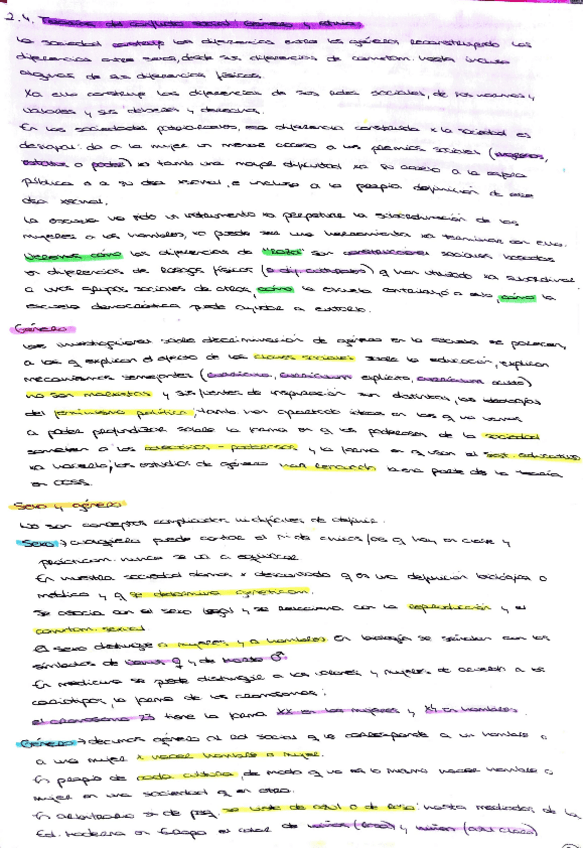 2.4. Teorías del conflicto social: género y etnia
La sociedad construye las diferencias entre los géneros reconstruyendo las
diferencias entre sexos, desde las diferencias de comportam. hasta incluso
algunas de las diferencias físicas.
Xa ello construye las diferencias de sus roles sociales, de sus normas y
valores y sus deberes y derechos.
En las sociedades patriarcales, esa diferencia construida x la sociedad es
desigual: da a la mujer un menor acceso a los premios sociales (ingresos,
estatus o poder) xo también una mayor dificultad xa su acceso a la esfera
pública o a su vida sexual, e incluso a la propia definición de esa
vida sexual.
La escuela ha sido un instrumento xa perpetuar la subordinación de las
mujeres a los hombres, xo puede ser una herramienta xa terminar con ella.
Veremos cómo las diferencias de "raza" son construcciones sociales basadas
en diferencias de rasgos físicos (o dif. culturales) q han utilizado xa subordinar
a unos grupos sociales de otros, cómo la escuela contribuyó a esto, cómo la
escuela democrática puede ayudar a evitarlo.
Género
Las investigaciones sobre discriminación de género en la escuela se parecen
a las q explican el efecto de las clases sociales sobre la educación, explican
mecanismos semejantes (currículum explícito, currículum oculto)
no son marxistas y sus fuentes de inspiración son distintas, las ideologías
del feminismo político; tanto han aportado ideas en las q vamos
a poder profundizar sobre la forma en q los poderosos de la sociedad
someten a los colectivos - poderosos y la forma en q usan el sist. educativo
xa hacerlo; los estudios de género han llenado buena parte de la teoría
en CCSS.
Sexo y género
No son conceptos complicados ni difíciles de definir.
Sexo → cualquiera puede contar el nº de chicas/os q hay en clase y
prácticam. nunca se va a equivocar
En nuestra sociedad damos x descontado q es una definición biológica o
médica y q se determina genéticam.
Se asocia con el sexo legal y se relaciona con la reproducción y el
comportam. sexual
El sexo distingue a mujeres y a hombres. En biología se señalan con los
símbolos de Venus ♀ y de Marte ♂
En medicina se puede distinguir a los varones y mujeres de acuerdo a los
cariotipos, la forma de los cromosomas:
el cromosoma 23 tiene la forma XX en las mujeres y XY en hombres.
Género → decimos género al rol social q le corresponde a un hombre o
a una mujer x nacer hombre o mujer.
Es propio de cada cultura, de modo q no es lo mismo nacer hombre o
mujer en una sociedad q en otra.
Es arbitrario si de peq. se viste de azul o de rosa: hasta mediados de la
Ed. Moderna en Europa el color de niños (rosa) y niñas (azul claro)